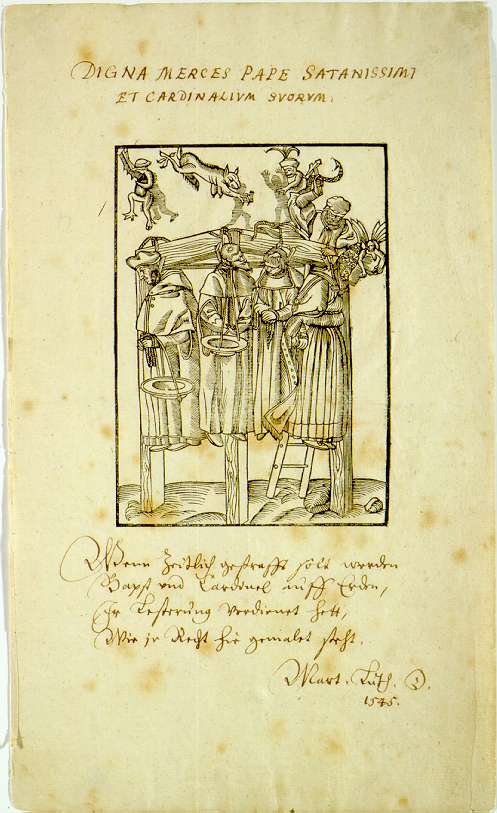 DIGNA MERCES PAPE SATANISSIMI
ET CARDINALIVM SVORVM.
Wenn Zeitlich gestrafft solt werden
Bapst vnd Cardinel auff Erden,
Ihr Lesterung verdienet hett,
Wie jr Recht hie gemalet steht.
Mart. Luth. D.
1545.